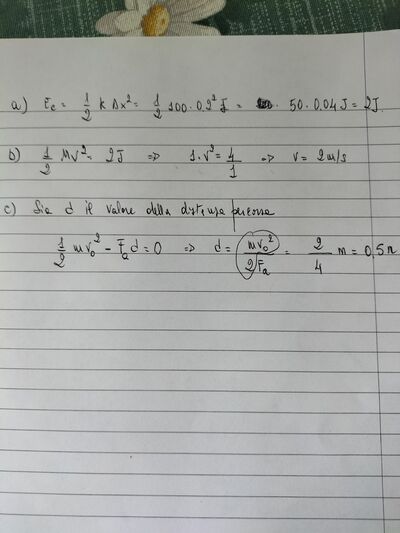 a) Ee = 1/2 k Δx² = 1/2 100 · 0.2² J = 50 · 0.04 J = 2J
b) 1/2 Mv² = 2J => 1·v² = 4/1 => v = 2m/s
c) Sia d il valore della distanza percorsa
1/2 mv₀² - Fa d = 0 => d = mv₀²/2Fa = 2/4 m = 0,5m